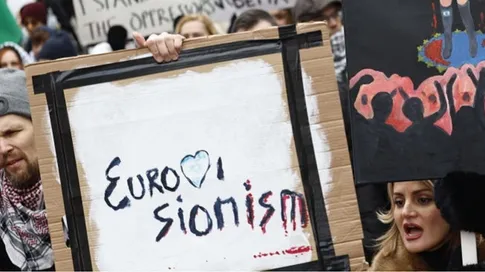 I STAN
THE OPPRESSION
EURO♥I
SIONISM